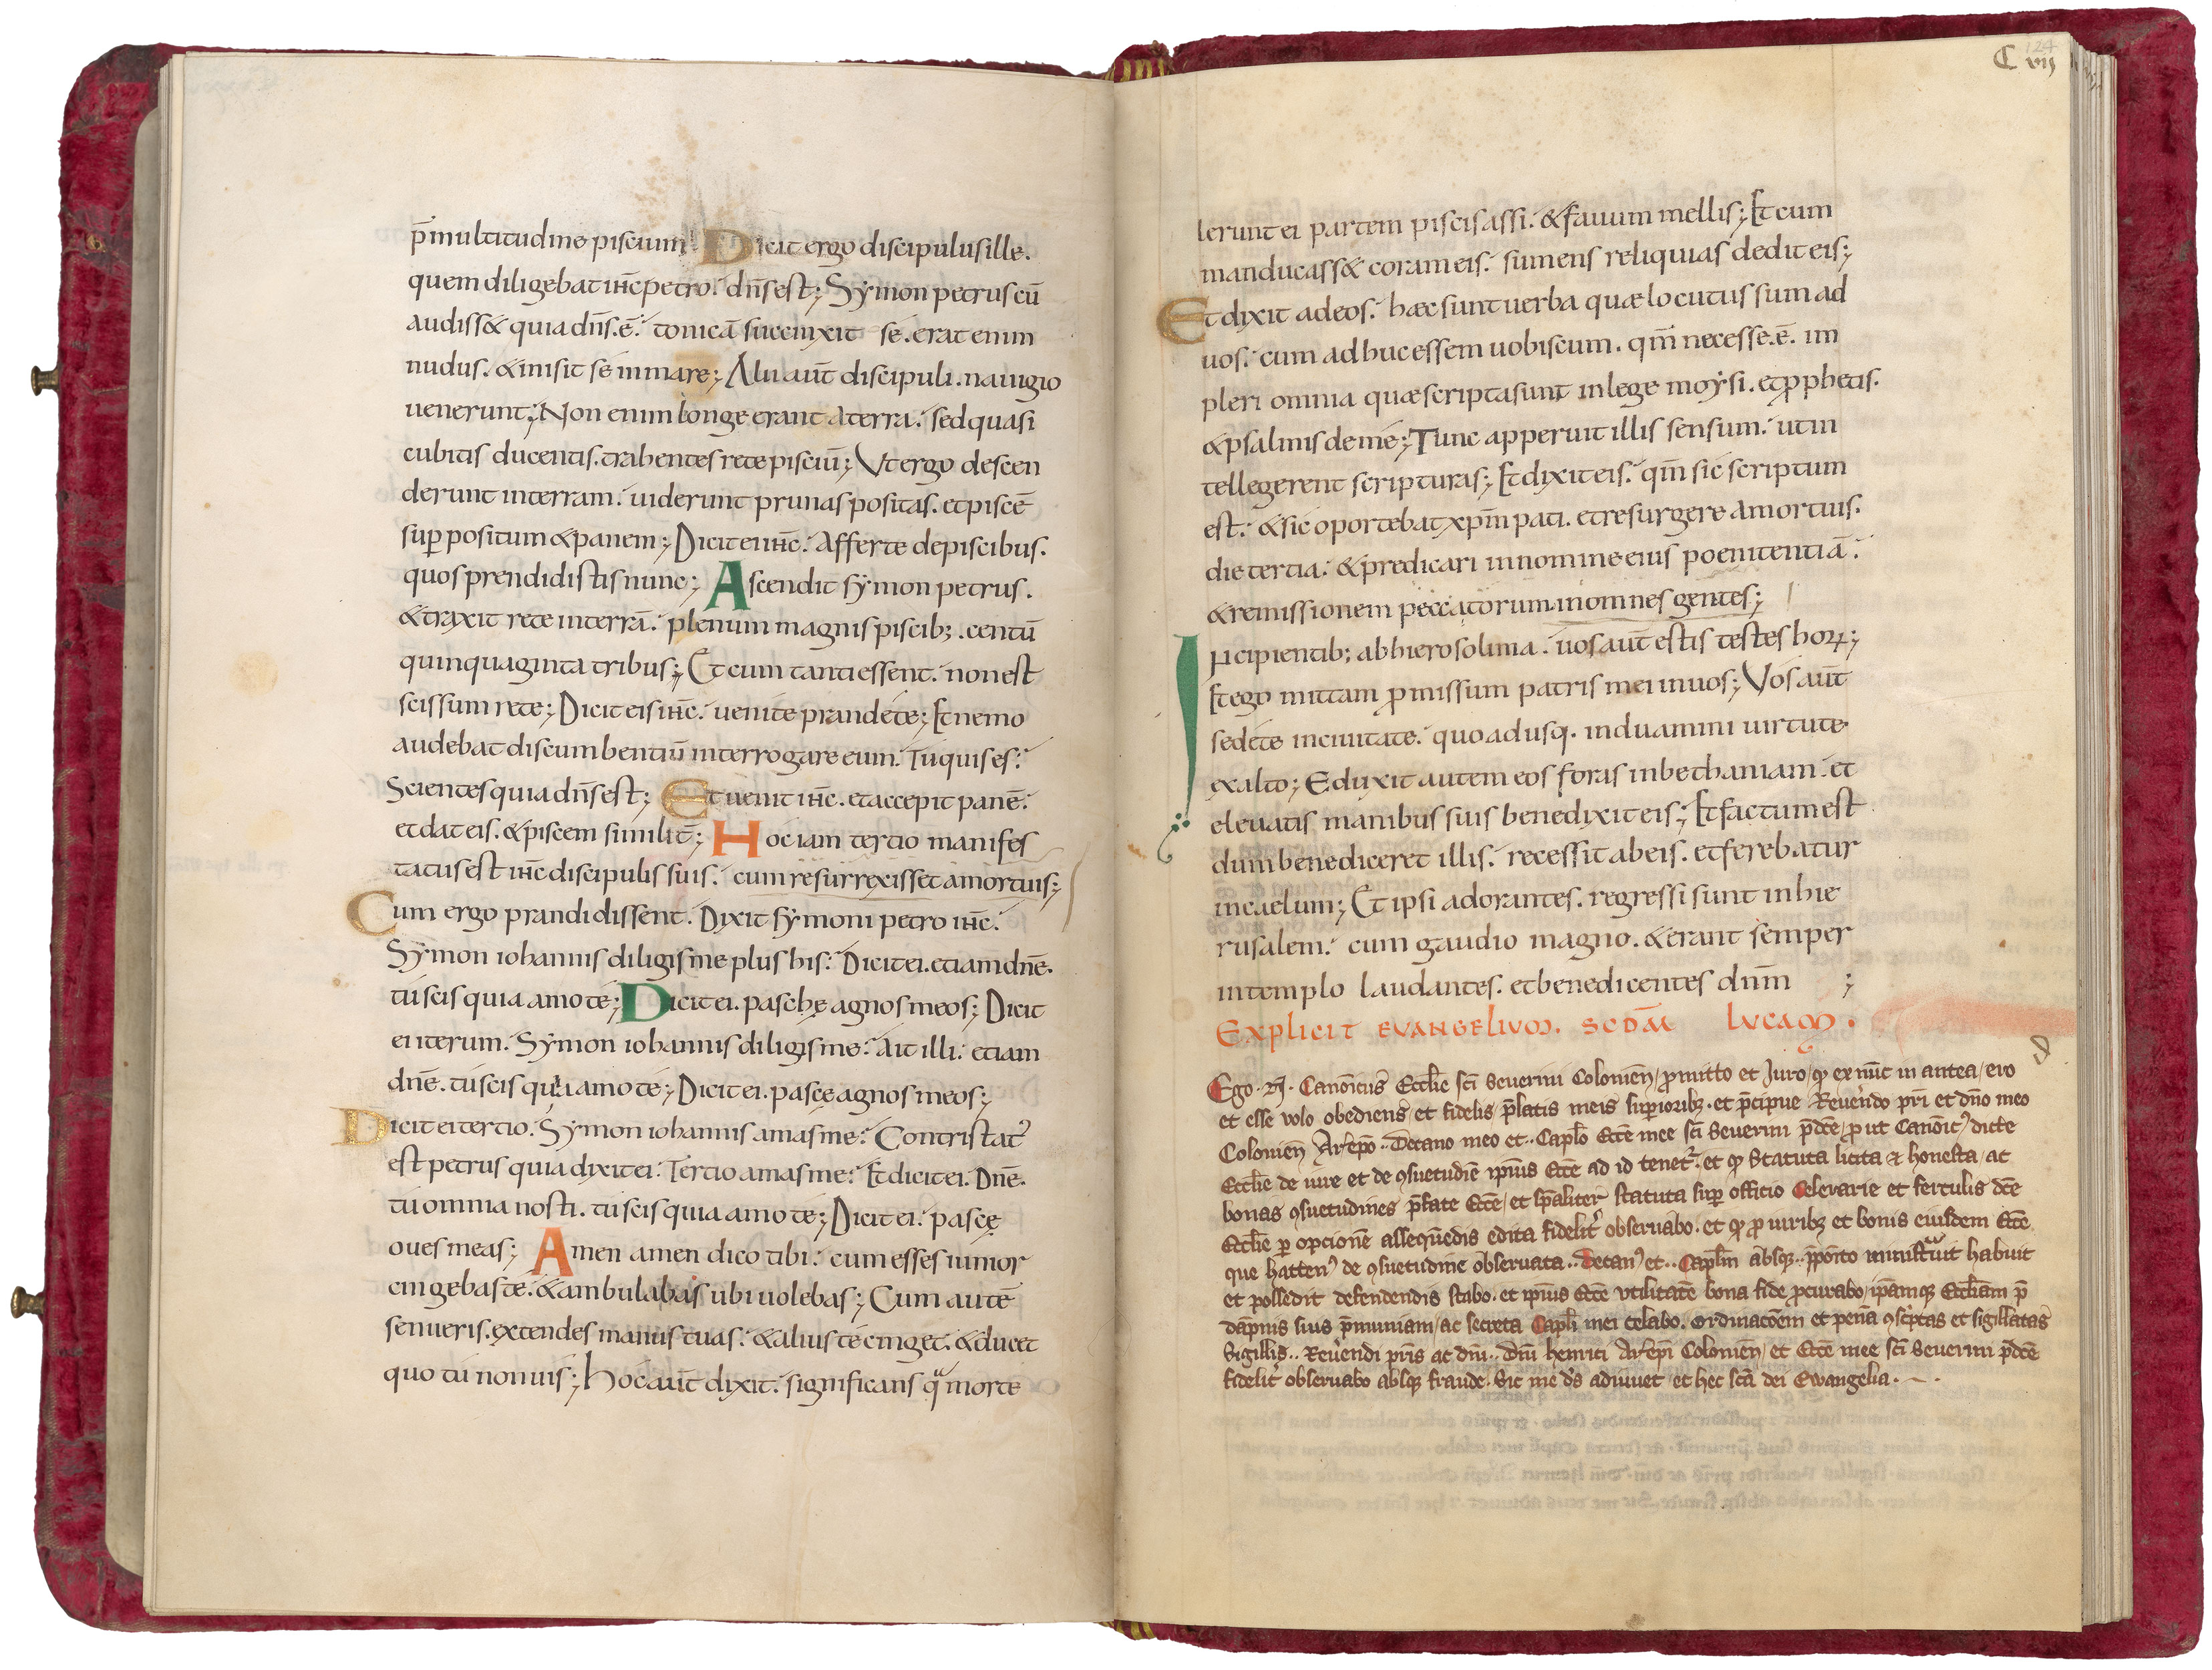 p̄ multitudine piscium; Dicit ergo discipulus ille.
quem diligebat ih̄c petro. dn̄s est; Sẏmon petrus cū
audiss& quia dn̄s.ē. tonicā succinxit se. erat enim
nudus. & misit se in mare; Alii aūt discipuli. nauigio
uenerunt; Non enim longe erant a terra. sed quasi
cubitis ducentis. trahentes rete pisciū; Vt ergo descen
derunt in terram. uiderunt prunas positas. et piscē
sup̄ positum & panem; Dicit ei ih̄c. Afferte de piscibus.
quos prendidistis nunc; Ascendit sẏmon petrus.
& traxit rete in terrā. plenum magnis piscib;. centū
quinquaginta tribus; Et cum tanti essent. non est
scissum rete; Dicit eis ih̄c. uenite prandete; Et nemo
audebat discumbentiū interrogare eum. Tu quis es.
Scientes quia dn̄s est; Et uenit ih̄c. et accepit panē.
et dat eis. & piscem similit̄; Hoc iam tertio manifes
tatus est ih̄c discipulis suis. cum resurrexisset a mortuis;
Cum ergo prandidissent. Dixit sẏmoni petro ih̄c.
Sẏmon iohannis diligis me plus his. Dicit ei. etiam dn̄e.
tu scis quia amo te; Dicit ei. pasche agnos meos; Dicit
ei iterum. Sẏmon iohannis diligis me. Ait illi. etiam
dn̄e. tu scis quia amo te; Dicit ei. pasce agnos meos;
Dicit ei tertio. Sẏmon iohannis amas me. Contristat᾿
est petrus quia dixit ei. Tertio amas me. Et dicit ei. Dn̄e.
tu omnia nosti. tu scis quia amo te; Dicit ei. pascę
oues meas; Amen amen dico tibi. cum esses iunior
cingebas te. & ambulabas ubi uolebas; Cum autē
senueris. extendes manus tuas. & alius te cinget. & ducet
quo tu non uis; Hoc aūt dixit. significans qͣ morte
C vij
124
lerunt ei partem piscis assi. & fauum mellis; Et cum
manducass& coram eis. sumens reliquias dedit eis;
Et dixit ad eos. hæc sunt uerba quæ locutus sum ad
uos. cum adhuc essem uobiscum. qm̄ necesse.ē. im
pleri omnia quæ scripta sunt in lege moẏsi. et ꝓphetis.
& psalmis de me; Tunc apperuit illis sensum. ut in
tellegerent scripturas; Et dixit eis. qm̄ sic scriptum
est. & sic oportebat xp̄m pati. et resurgere a mortuis.
die tertia. & predicari in nomine eius poenitentiā.
& remissionem peccatorum in omnes gentes;
Incipientib; ab hierosolima. uos aūt estis testes hoꝝ;
Et ego mittam ꝓmissum patris mei in uos; Vos aūt
sedete in ciuitate. quo adusq. induamini uirtute
ex alto; Eduxit autem eos foras in bethaniam. et
eleuatis manibus suis benedixit eis; Et factum est
dum benediceret illis. recessit ab eis. et ferebatur
in caelum; Et ipsi adorantes. regressi sunt in hie
rusalem. cum gaudio magno. & erant semper
in templo laudantes. et benedicentes dn̄m ;
Explicit evangeliuM. scdM lucaM.
Ego .N. Canōicus Eccl̄ie sc̄i Seuerini Colonien̄ / ꝓmitto et Juro / qꝫ ex nūc in antea / ero
et esse volo obediens et fidelis / p̄latis meis sup̄ioribꝫ. et p̄cipue Reuēndo pr̄i et dn̄o meo
Colonien̄ Arēpo.. Decano meo et.. Capl̄o Ecc̄e mee sc̄i Seuerini p̄dc̄e / ꝓut Canōic᾿ dicte
Eccl̄ie de iure et de ꝯsuetudīe ip̄ius Ecc̄e ad id tenet᷑. et qꝫ Statuta licita ⁊ honesta / ac
bonas ꝯsuetudines p̄fate Ecc̄e / et sp̄aliter statuta sup̄ officio Celerarie et ferculis dc̄e
Eccl̄ie ꝑ opcionē assequēdis edita fidelit᷑ obseruabo. et qꝫ ꝓ iuribꝫ et bonis eiusdem Ecc̄e
que hatten᾿ de ꝯsuetudine obseruata.. Decan᾿ et.. Capl̄m absqꝫ.. p̄pōito ministrauit habuit
et possedit defendendis stabo. et ip̄ius Ecc̄e vtilitatē bona fide ꝓcurabo / ip̄amqꝫ Eccl̄iam p̄
dāpnis suis p̄muniam / ac secreta Capl̄i mei celabo. Ordinacōem et penā ꝯscͥptas et sigillatas
Sigillis.. Reuēndi pr̄is ac dn̄i.. Dn̄i henrici Arēpi Colonien̄ / et Ecc̄e mee sc̄i Seuerini p̄dc̄e
fidelit᷑ obseruabo absqꝫ fraude. Sic me ds̄ adiuuet / et hec sc̄a dei Ewangelia.